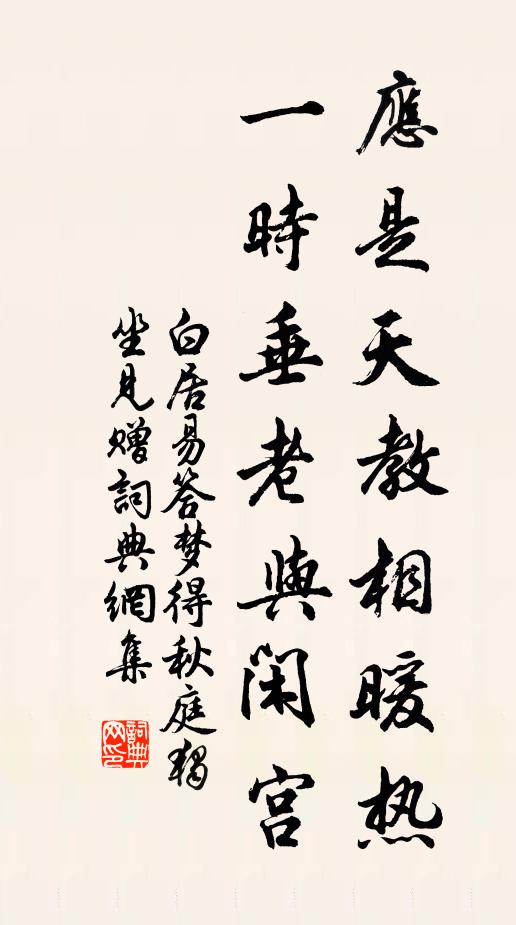 應是天教相暖热
一時垂老與閑宫
白居易答梦得秋庭獨
坐見赠詞典網集
詞典
网印